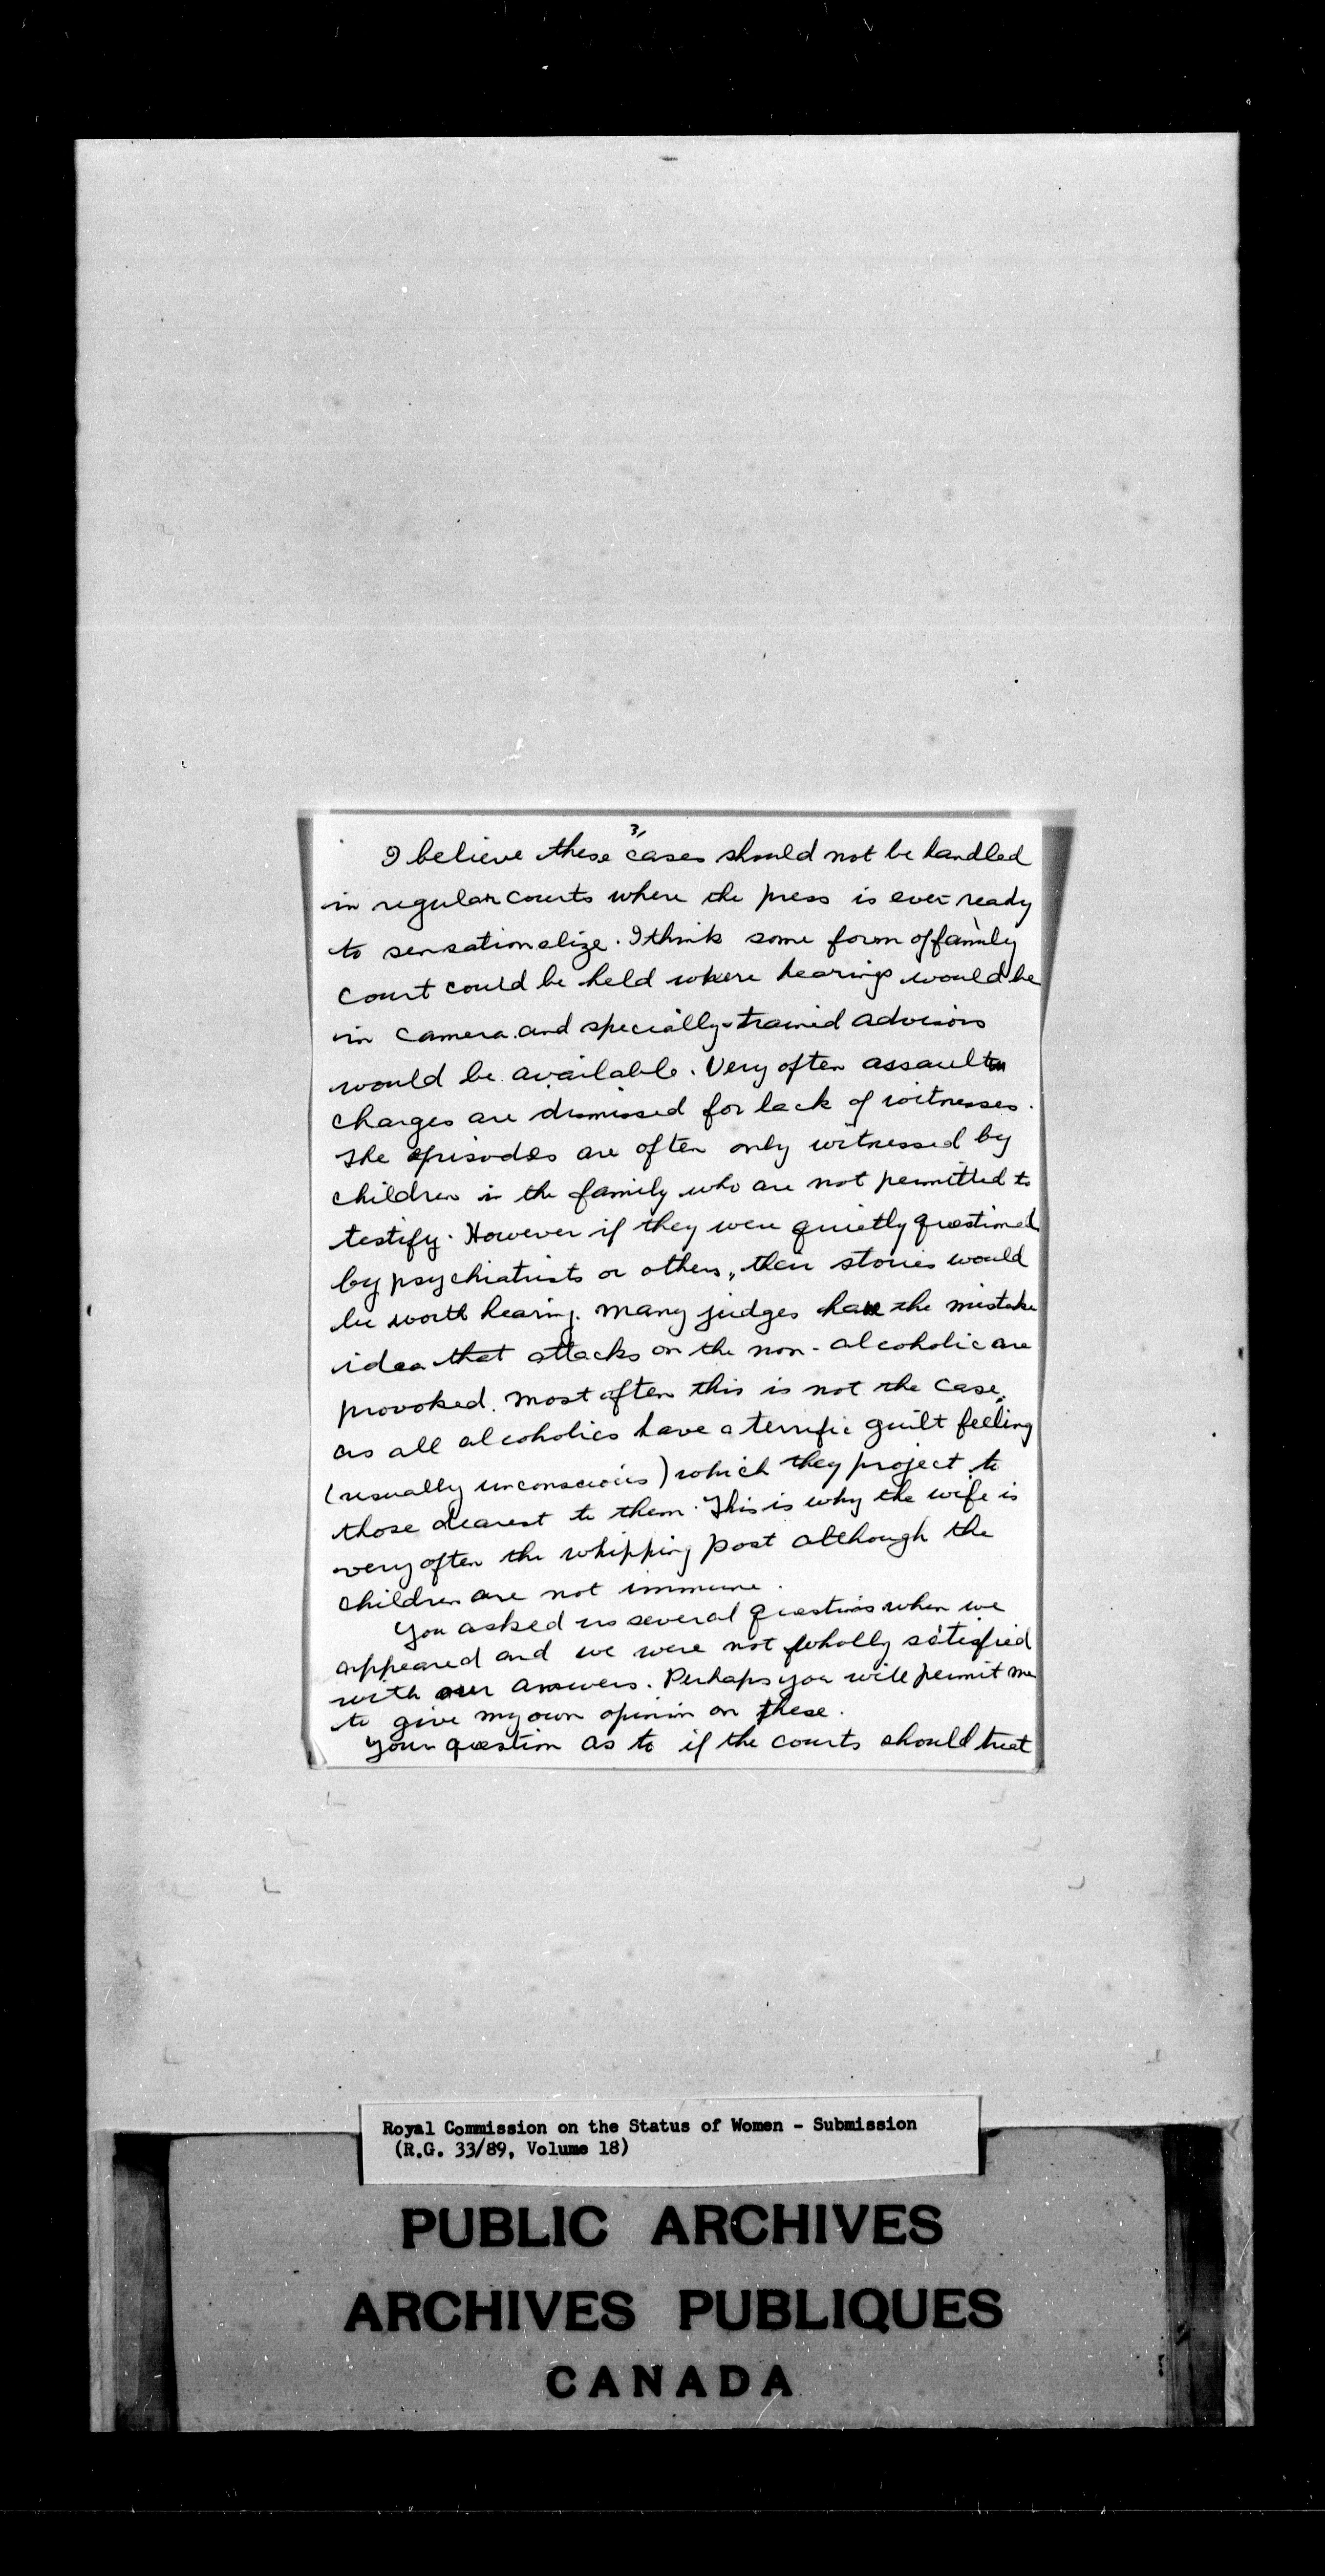 3,
I believe these cases should not be handled
in regular courts where the press is ever ready
to sensationalize. I think some form of family
court could be held where hearings would be
in camera and specially-trained advisors
would be available. Very often assault
charges are dismissed for lack of witnesses.
The episodes are often only witnessed by
children in the family who are not permitted to
testify. However if they were quietly questioned
by psychiatrists or others, their stories would
be worth hearing. Many judges have the mistake
idea that attacks on the non-alcoholic are
provoked. Most often this is not the case,
as all alcoholics have a terrific guilt feeling
(usually unconscious) which they project to
those dearest to them. This is why the wife is
very often the whipping post although the
children are not immune.
You asked us several questions when we
appeared and we were not wholly satisfied
with our answers. Perhaps you will permit me
to give my own opinion on these.
Your question as to if the courts should treat
Royal Commission on the Status of Women - Submission
(R.G. 33/89, Volume 18)
PUBLIC ARCHIVES
ARCHIVES PUBLIQUES
CANADA